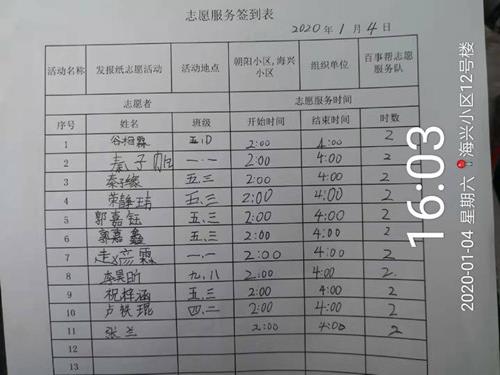 志愿服务签到表
2020年1月4日
活动名称 发报纸志愿活动 活动地点 朝阳小区,海兴小区 组织单位 百事帮志愿服务队
志愿者 志愿服务时间
序号 姓名 班级 开始时间 结束时间 时数
1 谷 霖 五. 2:00 4:00 2
2 秦子 一.一 2:00 4:00 2
3 秦子缘 五.三 2:00 4:00 2
4 荣静 五.三 2:00 4:00 2
5 郭嘉钰 五.三 2:00 4:00 2
6 郭嘉鑫 五.三 2:00 4:00 2
7 赵彦霖 一.一 2:00 4:00 2
8 李昊 九.八 2:00 4:00 2
9 祝梓涵 五.三 2:00 4:00 2
10 卢 琨 四.二 2:00 4:00 2
11 张兰 2:00 4:00 2
12
13
16:03
2020-01-04 星期六 海兴小区12号楼